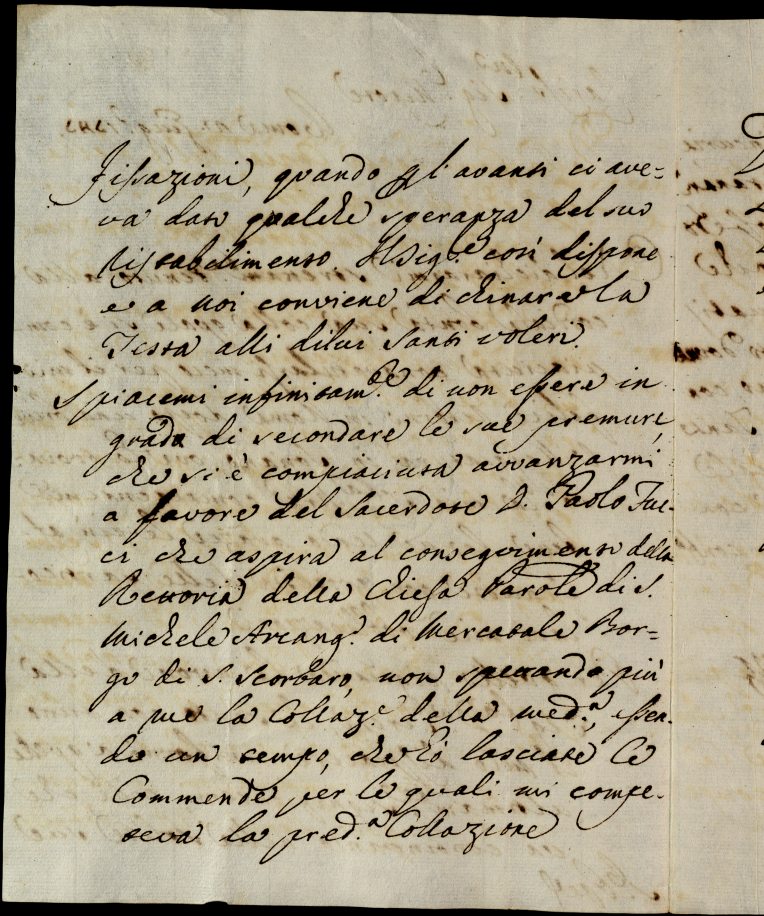 fissazioni, quando gl'avanti ci ave-
va dato qualche speranza del suo
ristabilimento. Il Sig.e così dispone
e a noi conviene di chinare la
Testa alli di lui santi voleri.
Spiacemi infinitam.te di non essere in
grado di secondare le sue premure,
che si è compiaciuta avvanzarmi
a favore del Sacerdote D. Paolo Fuc-
ci che aspira al conseguimento della
Rettoria della Chiesa Parole di S.
Michele Arcang.o di Mercatale Bor-
go di S. , non spettando più
a me la Collaz.e della med.a, essen-
do un tempo, che hò lasciate le
Commende per le quali mi compe-
teva la pred.a Collazione